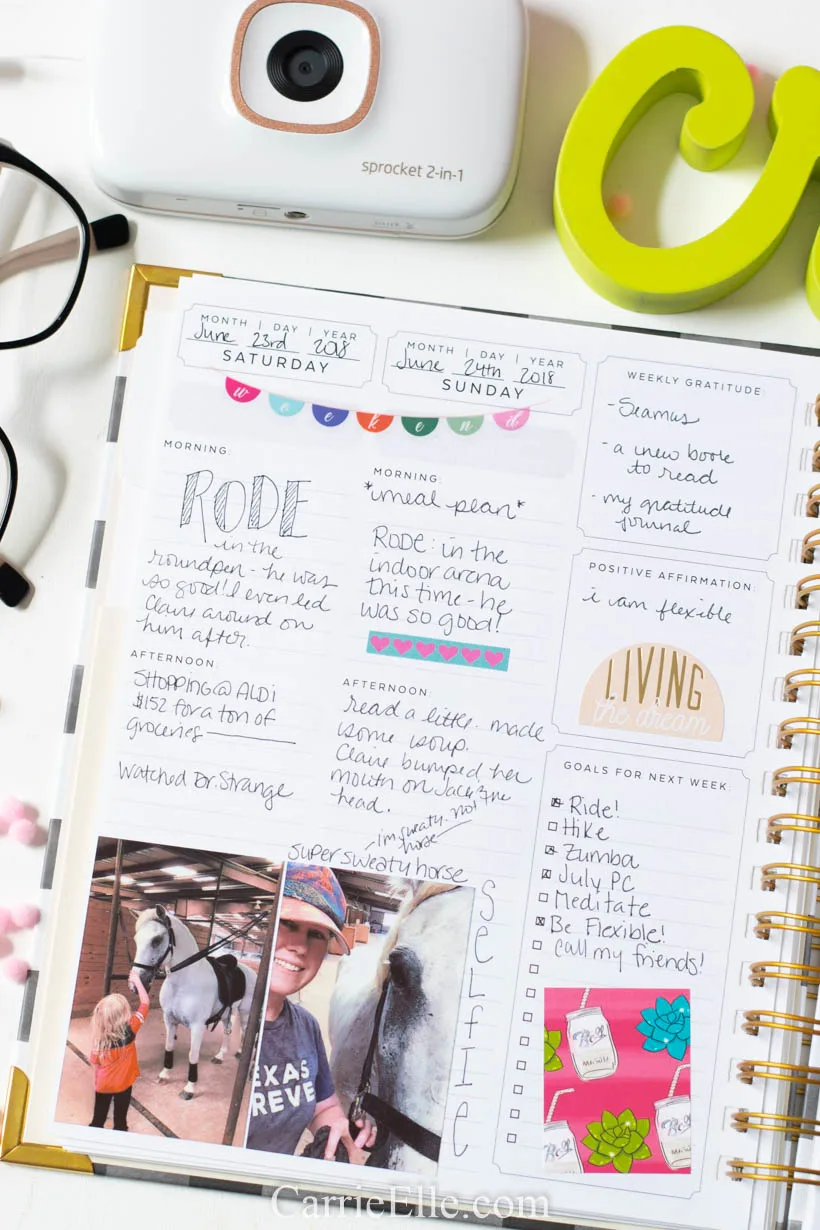 sprocket 2-in-1
MONTH | DAY | YEAR
June 23rd 2018
SATURDAY
MONTH | DAY | YEAR
June 24th 2018
SUNDAY
weekend
MORNING:
RODE
in the
roundpen - he was
so good! I even led
Claire around on
him after.
AFTERNOON:
SHOPPING @ ALDI
$152 for a ton of
groceries
Watched Dr. Strange
MORNING:
*meal plan*
RODE: in the
indoor arena
this time - he
was so good!
AFTERNOON:
read a little. made
some soup.
Claire bumped her
mouth on Jack's
head.
im sweaty. not
horse
super sweaty horse
SELFIE
EXAS
REVE
WEEKLY GRATITUDE:
- Seamus
- a new book
to read
- my gratitude
journal
POSITIVE AFFIRMATION:
i am flexible
LIVING
the dream
GOALS FOR NEXT WEEK:
Ride!
Hike
Zumba
July PC
Meditate
Be Flexible!
call my friends!
CarrieElle.com